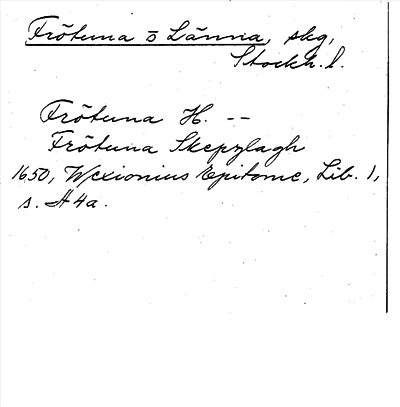 Frötuna o Länna, skg,
Stockh. l.
Frötuna H. --
Frötuna Skepzlagh
1650, Wexionius Epitome, Lib. 1,
s. A4a.